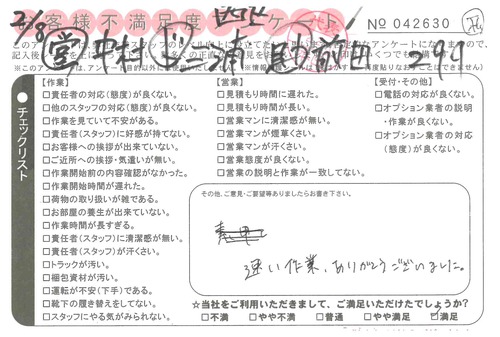 お客様不満足度アンケート
No 042630
チェックリスト
【作業】
□責任者の対応(態度)が良くない。
□他のスタッフの対応(態度)が良くない。
□作業を見ていて不安がある。
□責任者(スタッフ)に好感が持てない。
□お客様への挨拶が出来ていない。
□ご近所への挨拶・気遣いが無い。
□作業開始前の内容確認がなかった。
□作業開始時間が遅れた。
□荷物の取り扱いが雑である。
□お部屋の養生が出来ていない。
□作業時間が長すぎる。
□責任者(スタッフ)に清潔感が無い。
□責任者(スタッフ)が汗くさい。
□トラックが汚い。
□梱包資材が汚い。
□運転が不安(下手)である。
□靴下の履き替えをしてない。
□スタッフにやる気がみられない。
【営業】
□見積もり時間に遅れた。
□見積もり時間が長い。
□営業マンに清潔感が無い。
□営業マンが煙草くさい。
□営業マンが汗くさい。
□営業態度が良くない。
□営業の説明と作業が一致してない。
【受付・その他】
□電話の対応が良くない。
□オプション業者の説明・作業が良くない。
□オプション業者の対応(態度)が良くない。
その他、ご意見・ご要望等ありましたらお書き下さい。
速い作業、ありがとうございました。
☆当社をご利用いただきまして、ご満足いただけたでしょうか?
□不満 □やや不満 □普通 □やや満足 ☑満足